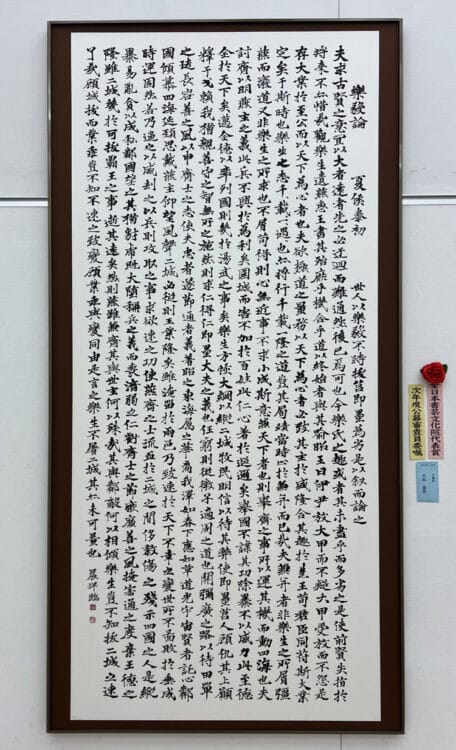 樂毅論 夏侯泰初 世人以樂毅不時拔莒即墨為劣是以叙而論之
夫求古賢之意宜以大者遠者先之必迂迴而難通然後已焉可也今樂氏之趣或者其未盡乎而多劣之是使前賢失指於
將來不亦惜哉觀樂生遺燕惠王書其殆庶乎機合乎道以終始者與其喻昭王曰伊尹放大甲而不疑大甲受放而不怨是
存大業於至公而以天下為心者也夫欲極道之量務以天下為心者必致其主於盛隆合其趣於先王苟君臣同符斯大業
定矣于斯時也樂生之志千載一遇也亦將行千載一隆之道豈其局蹟當時止於兼并而已哉夫兼并者非樂生之所屑彊
燕而廢道又非樂生之所求也不屑苟得則心無近事不求小成斯意兼天下者也則舉齊之事所以運其機而動四海也夫
討齊以明燕主之義此兵不興於為利矣圍城而害不加於百姓此仁心著於遐邇矣舉國不謀其功除暴不以威力此至德
全於天下矣邁全德以率列國則幾於湯武之事矣樂生方恢大綱以縱二城牧民明信以待其弊使即墨莒人顧仇其上願
釋干戈賴我猶親善守之智無所之施然則求仁得仁即墨大夫之義也任窮則從微子適周之道也開彌廣之路以待田單
之徒長容善之風以申齊士之志使夫忠者遂節通者義著昭之東海屬之華裔我澤如春下應如草道光宇宙賢者託心鄰
國傾慕四海延頸思戴燕主仰望風聲二城必從則王業隆矣雖淹留於兩邑乃致速於天下不幸之變世所不圖敗於垂成
時運固然若乃逼之以威劫之以兵則攻取之事求欲速之功使燕齊之士流血於二城之間侈殺傷之殘示四國之人是縱
暴易亂貪以成私鄰國望之其猶豺虎既大墮稱兵之義而喪濟弱之仁虧齊士之節廢廉善之風掩宏通之度棄王德之
隆雖二城幾於可拔霸王之事逝其遠矣然則燕雖兼齊其與世主何以殊哉其與鄰敵何以相傾樂生豈不知拔二城之速
了哉顧城拔而業乖豈不知不速之致變顧業乖與變同由是言之樂生不屠二城其亦未可量也 祥臨
全日本書芸文化院代表賞
次年度公募審査員委嘱